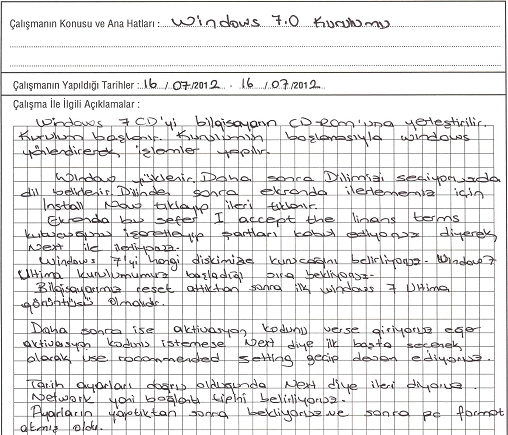 Çalışmanın Konusu ve Ana Hatları : Windows 7.0 Kurulumu
Çalışmanın Yapıldığı Tarihler : 16 / 07 / 2012 - 16 / 07 / 2012
Çalışma İle İlgili Açıklamalar :
Windows 7 CD'yi bilgisayarın CD-Rom'una yerleştirilir.
Kurulum başlanır. Kurulumun başlamasıyla windows
yönlendirerek işlemler yapılır.
Window yüklenir. Daha sonra Dilimizi seçiyoruz da
dil beklenir. Dilinden sonra ekranda ilerlememiz için
Install Now tıklayıp ileri tıklanır.
Ekranda bu sefer I accept the linans terms
kutucuğunu işaretleyip şartları kabul ediyoruz diyerek
Next ile ilerliyoruz.
Windows 7'yi hangi diskimize kuracağını belirliyoruz. Window 7
Ultima kurulumumuz başladığı sıra bekliyoruz.
Bilgisayarımız reset attıktan sonra ilk windows 7 Ultima
görüntüsü olmalıdır.
Daha sonra ise aktivasyon kodunu verse giriyoruz eğer
aktivasyon kodunu istemese Next diye ilk başta seçenek
olarak use rocommended setting geçip devam ediyoruz.
Tarih ayarları doğru olduğunda Next diye ileri diyoruz.
Network yani bağlantı tipini belirliyoruz.
Ayarların yaptıktan sonra bekliyoruz ve sonra pc format
atmış oldu.